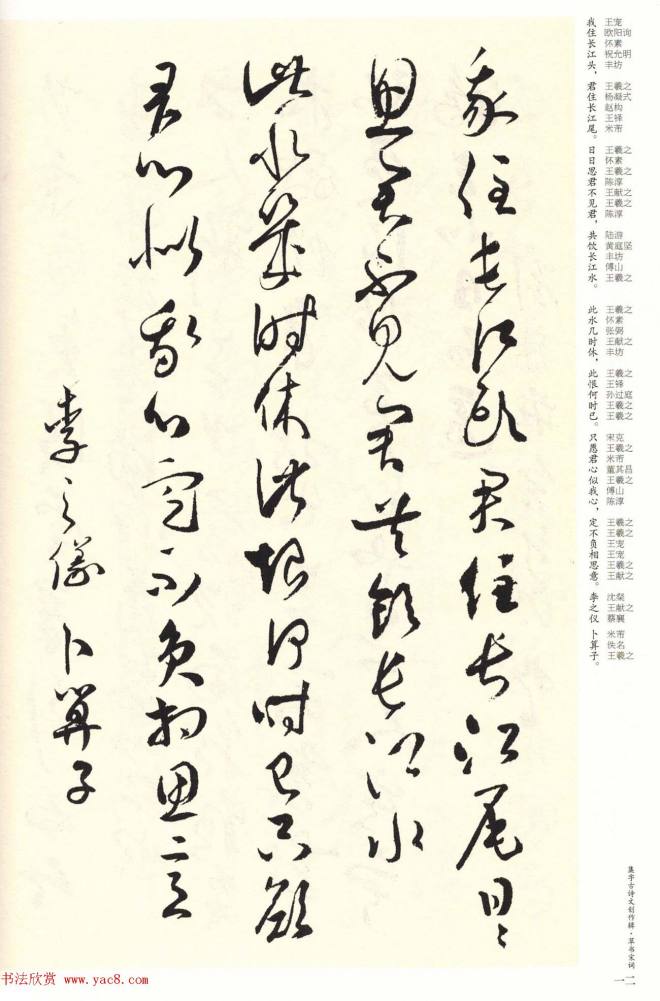 我住長江頭君住長江尾日〻
思君不見君共飲長江水
此水幾時休此恨何時已只願
君心似我心定不負相思意
李之儀 卜算子
我 王宠
住 欧阳询
长 怀素
江 祝允明
头， 丰坊
君 王羲之
住 杨凝式
长 赵构
江 王铎
尾。 米芾
日 王羲之
日 怀素
思 王羲之
君 陈淳
不 王献之
见 王羲之
君， 陈淳
共 陆游
饮 黄庭坚
长 丰坊
江 傅山
水。 王羲之
此 王羲之
水 怀素
几 张弼
时 王献之
休， 丰坊
此 王羲之
恨 王铎
何 孙过庭
时 王羲之
已。 王羲之
只 宋克
愿 王羲之
君 米芾
心 董其昌
似 王羲之
我 傅山
心， 陈淳
定 王羲之
不 王羲之
负 王宠
相 王宠
思 王羲之
意。 王献之
李 沈粲
之 王献之
仪 蔡襄
卜 米芾
算 佚名
子。 王羲之
集字古诗文创作辑·草书宋词
一二
书法欣赏 www.yac8.com